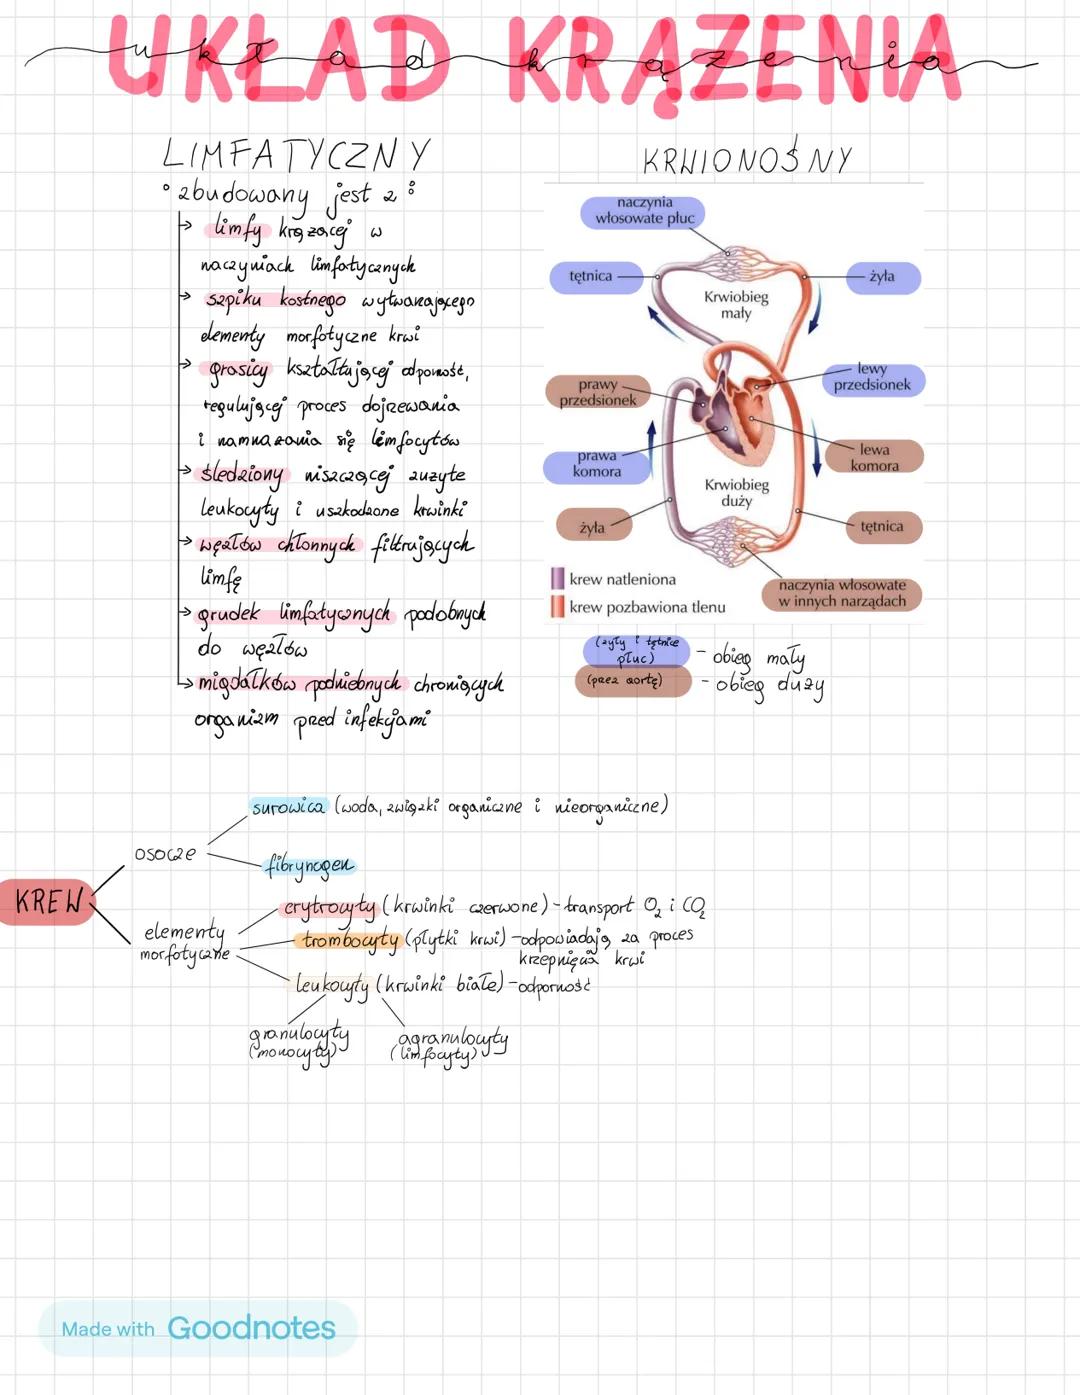 UKŁAD KRĄŻENIA
układ krążenia
LIMFATYCZNY
° zbudowany jest z :
→ limfy krążącej w
naczyniach limfatycznych
→ szpiku kostnego wytwarzającego
elementy morfotyczne krwi
→ grasicy kształtującej odporność,
regulującej proces dojrzewania
i namnażania się limfocytów
→ śledziony niszczącej zużyte
leukocyty i uszkodzone krwinki
→ węzłów chłonnych filtrujących
limfę
→ grudek limfatycznych podobnych
do węzłów
→ migdałków podniebnych chroniących
organizm pred infekcjami
KRWIONOŚNY
naczynia
włosowate płuc
tętnica
żyła
Krwiobieg
mały
lewy
przedsionek
prawy
przedsionek
prawa
komora
lewa
komora
Krwiobieg
duży
żyła
tętnica
krew natleniona
krew pozbawiona tlenu
naczynia włosowate
w innych narządach
(żyły i tętnice
płuc)
- obieg mały
(przez aortę)
- obieg duży
KREW
osocze
surowica (woda, związki organiczne i nieorganiczne)
fibrynogen
elementy
morfotyczne
erytrocyty (krwinki czerwone) - transport O₂ i CO₂
trombocyty (płytki krwi) - odpowiadają za proces
krzepnięcia krwi
leukocyty (krwinki białe) - odporność
granulocyty
(monocyty)
agranulocyty
(limfocyty)
Made with Goodnotes